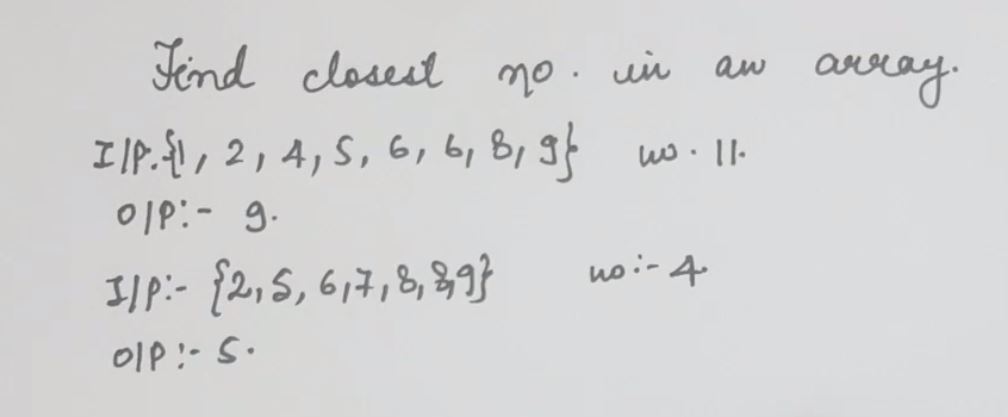 Find closest no. in an array.
I/P:{1, 2, 4, 5, 6, 6, 8, 9} no. 11.
O/P:- 9.
I/P:- {2, 5, 6, 7, 8, 8, 9} no:- 4
O/P:- 5.